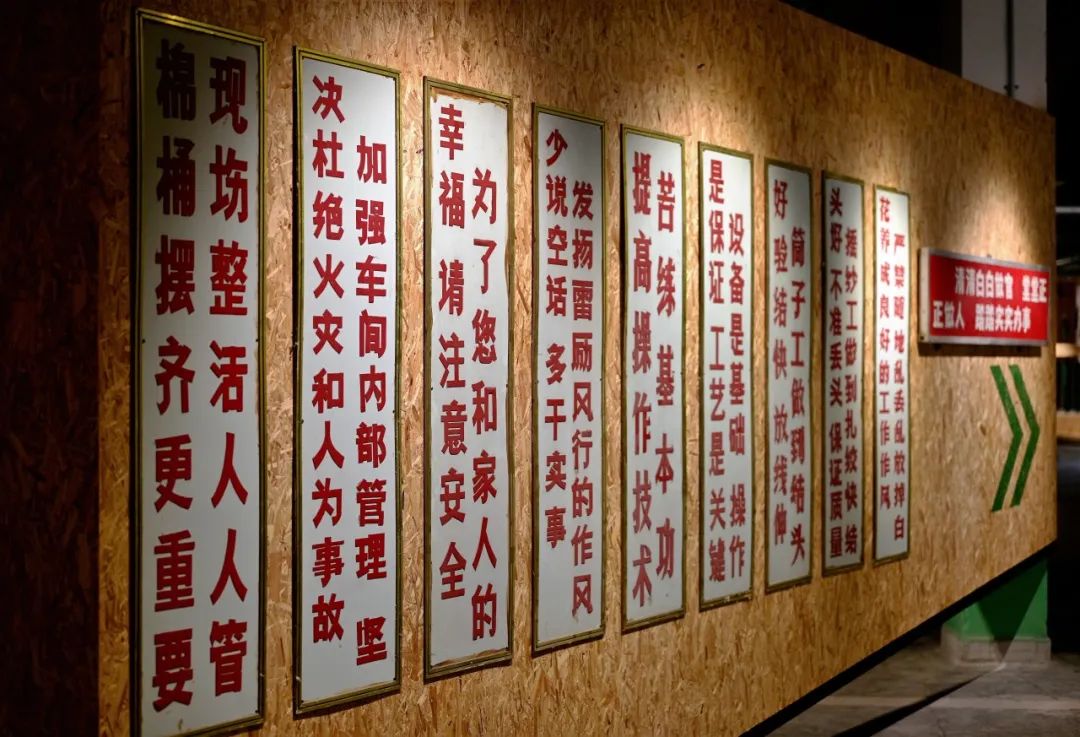 现场整活人人管
棉桶摆齐更重要
加强车间内部管理 坚
决杜绝火灾和人为事故
为了您和家人的
幸福 请注意安全
发扬雷励风行的作风
少说空话 多干实事
苦练基本功
提高操作技术
设备是基础 操作
是保证 工艺是关键
筒子工做到结头
好 验结快 放线伸
摇纱工做到扎绞快结
头好 不准丢头 保证质量
严禁随地乱丢乱放掉白
花养成良好的工作作风
清清白白做官 堂堂正
正做人 踏踏实实办事